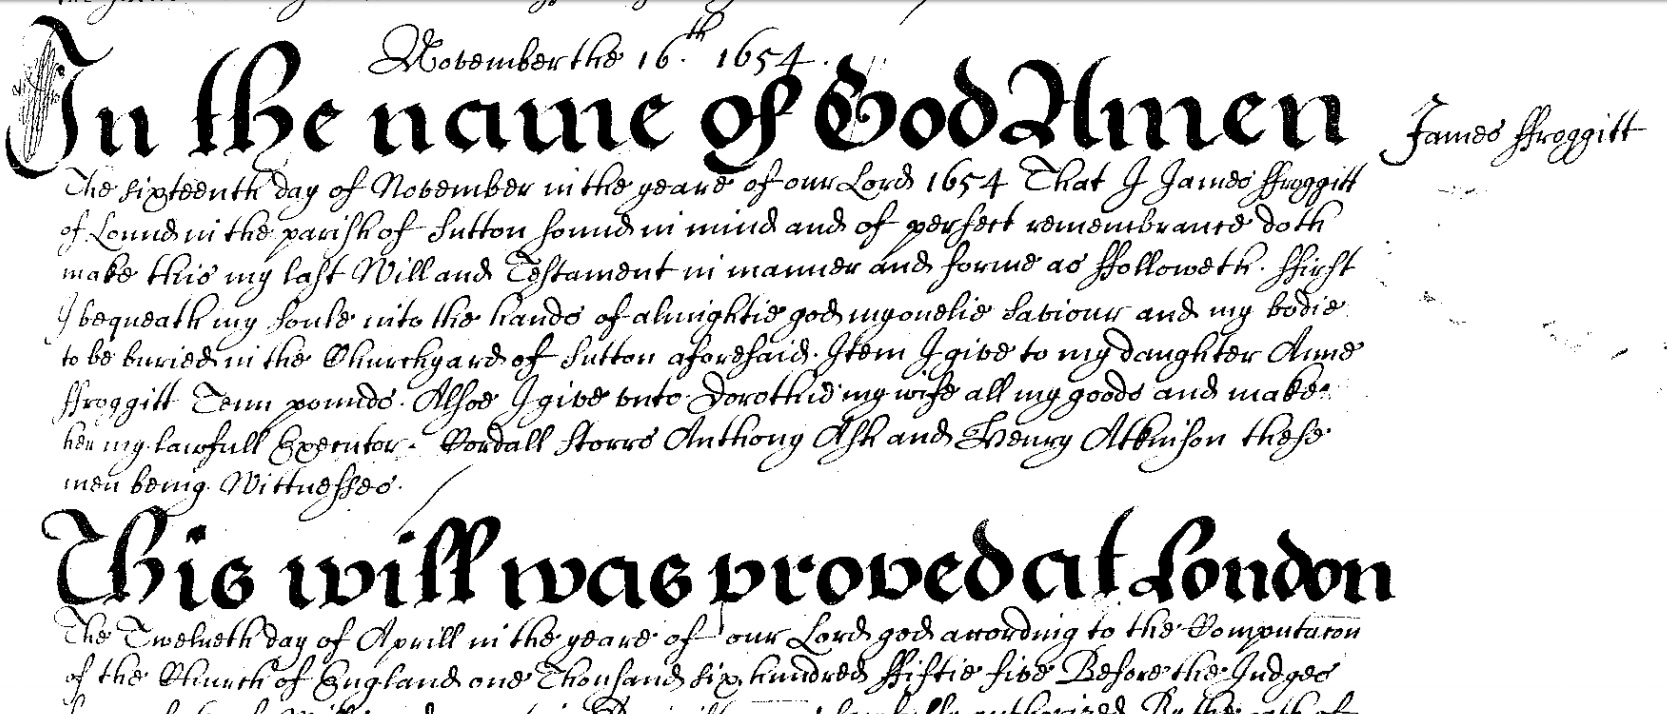 November the 16th. 1654.
In the name of God Amen
James ffroggitt
The sixteenth day of November in the yeare of our Lord 1654 That I James ffroggitt
of Lound in the parish of Sutton sound in mind and of perfect remembrance doth
make this my last Will and Testament in manner and forme as ffolloweth. ffirst
I bequeath my soule into the hands of almightie god my onelie saviour and my bodie
to be buried in the Churchyard of Sutton aforesaid. Item I give to my daughter Anne
ffroggitt Tenn pounds. Alsoe I give unto Dorothie my wife all my goods and make
her my lawfull Executor. Cordall Storrs Anthony Ash and Henry Atkinson these
men being Wittnesses.
This will was proved at London
The Twelueth day of Aprill in the yeare of our Lord god according to the Computacon
of the Church of England one Thousand six hundred ffiftie five Before the Judges